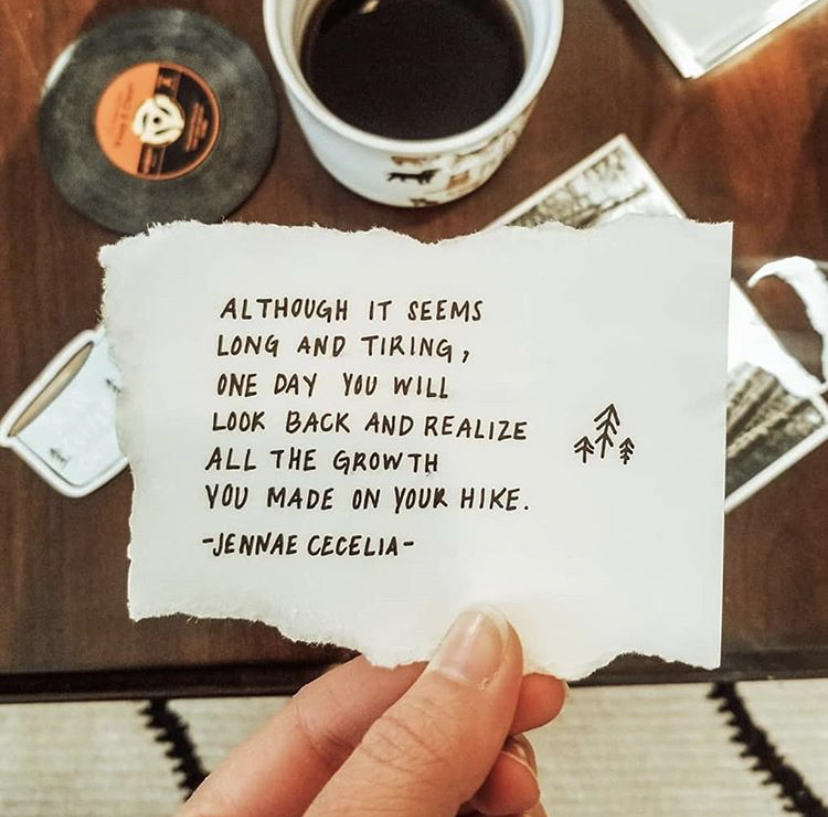 ALTHOUGH IT SEEMS
LONG AND TIRING,
ONE DAY YOU WILL
LOOK BACK AND REALIZE
ALL THE GROWTH
YOU MADE ON YOUR HIKE.
-JENNAE CECELIA-